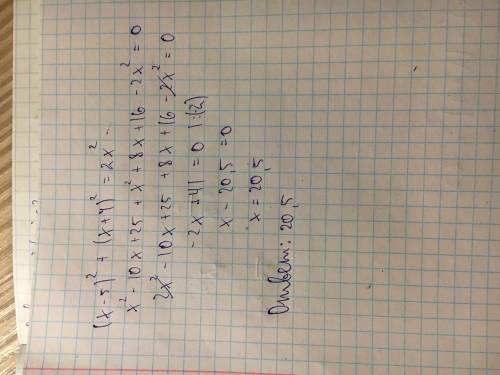 (x-5)² + (x+4)² = 2x²
x² - 10x + 25 + x² + 8x + 16 - 2x² = 0
2x² - 10x + 25 + 8x + 16 - 2x² = 0
-2x + 41 = 0 | :(-2)
x - 20,5 = 0
x = 20,5
Ответ: 20,5